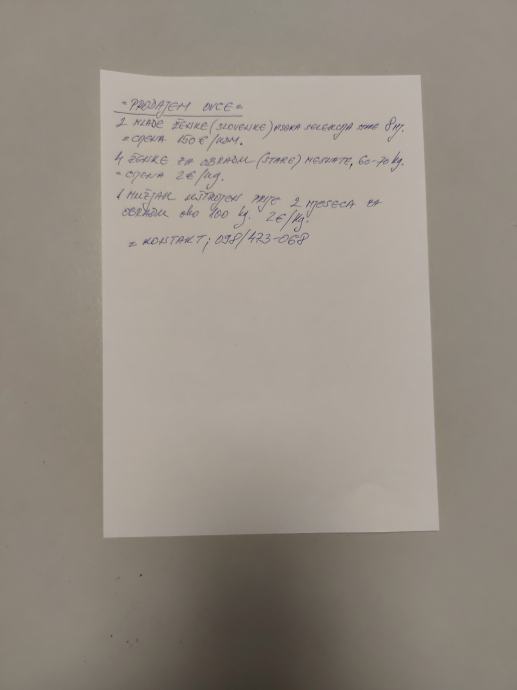 = PRODAJEM OVCE =
2 MLADE ŽENKE (SLOVENKE) VISOKA SELEKCIJA STARE 8 mj.
= CIJENA 150 € / KOM.
4 ŽENKE ZA OBRADU (STARE) MESNATE, 60-70 kg.
= CIJENA 2 € / kg.
1 MUŽJAK UŠTROJEN PRIJE 2 MJESECA ZA
OBRADU OKO 100 kg. 2 € / kg.
= KONTAKT; 098/423-068